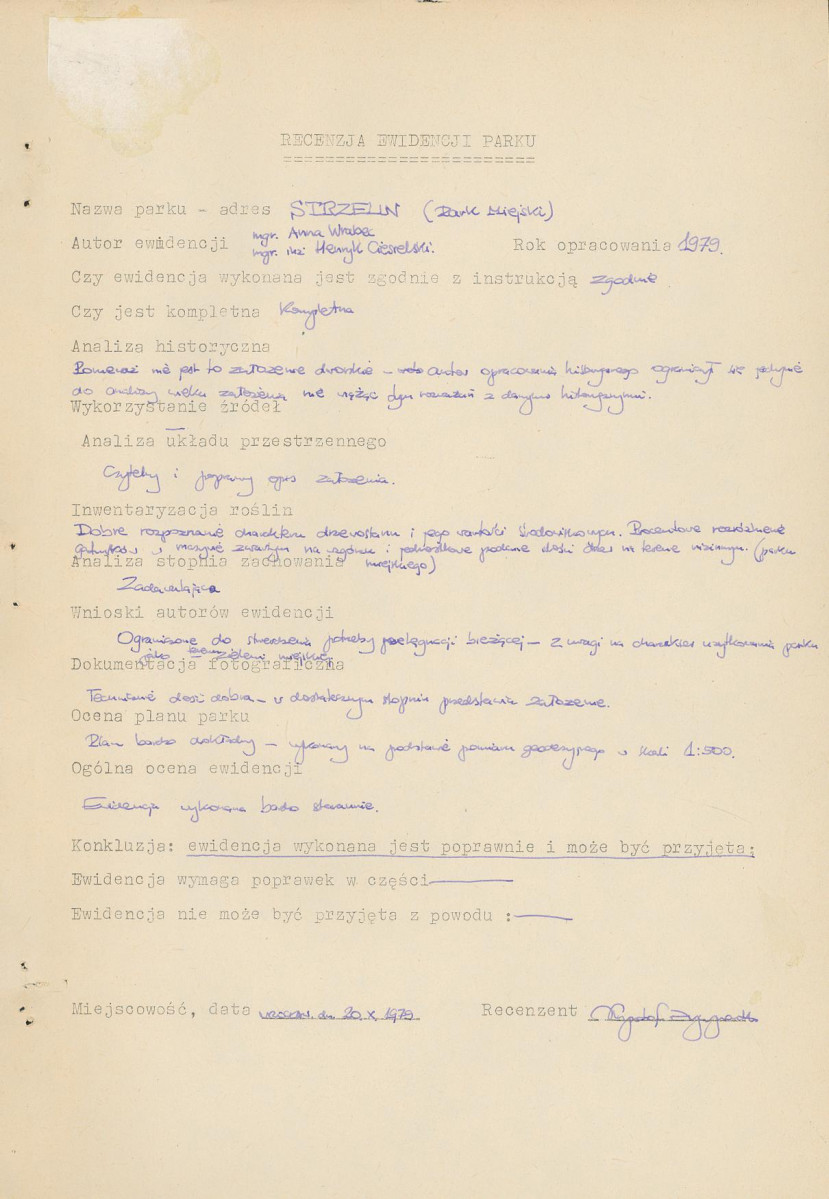 RECENZJA EWIDENCJI PARKU
=========================
Nazwa parku - adres STRZELIN (Park Miejski)
Autor ewidencji mgr. Anna Wrabec
mgr. inż Henryk Ciesielski. Rok opracowania 1979.
Czy ewidencja wykonana jest zgodnie z instrukcją zgodnie
Czy jest kompletna Kompletna
Analiza historyczna
Ponieważ nie jest to założenie dworskie - autor opracowania historycznego ograniczył się jedynie
do analizy wieku założenia nie wiążąc tych rozważań z danymi historycznymi.
Wykorzystanie źródeł —
Analiza układu przestrzennego
Czytelny i poprawny opis założenia.
Inwentaryzacja roślin
Dobre rozpoznanie charakteru drzewostanu i jego wartości środowiskowych. Procentowe rozróżnienie
gatunków w masywie zwartym na i podane ilości drzew w terenie (parku
miejskiego)
Analiza stopnia zachowania
Zadawalająca
Wnioski autorów ewidencji
Ograniczone do stwierdzenia potrzeby pielęgnacji bieżącej - z uwagi na charakter użytkowania parku
jako zieleni miejskiej
Dokumentacja fotograficzna
Technicznie dość dobra - w dostatecznym stopniu przedstawia założenie.
Ocena planu parku
Plan bardzo dokładny - wykonany na podstawie pomiaru geodezyjnego w skali 1:500.
Ogólna ocena ewidencji
Ewidencja wykonana bardzo starannie.
Konkluzja: ewidencja wykonana jest poprawnie i może być przyjęta;
Ewidencja wymaga poprawek w części —
Ewidencja nie może być przyjęta z powodu : —
Miejscowość, data Wrocław. dn. 20.X.1979. Recenzent Krzysztof